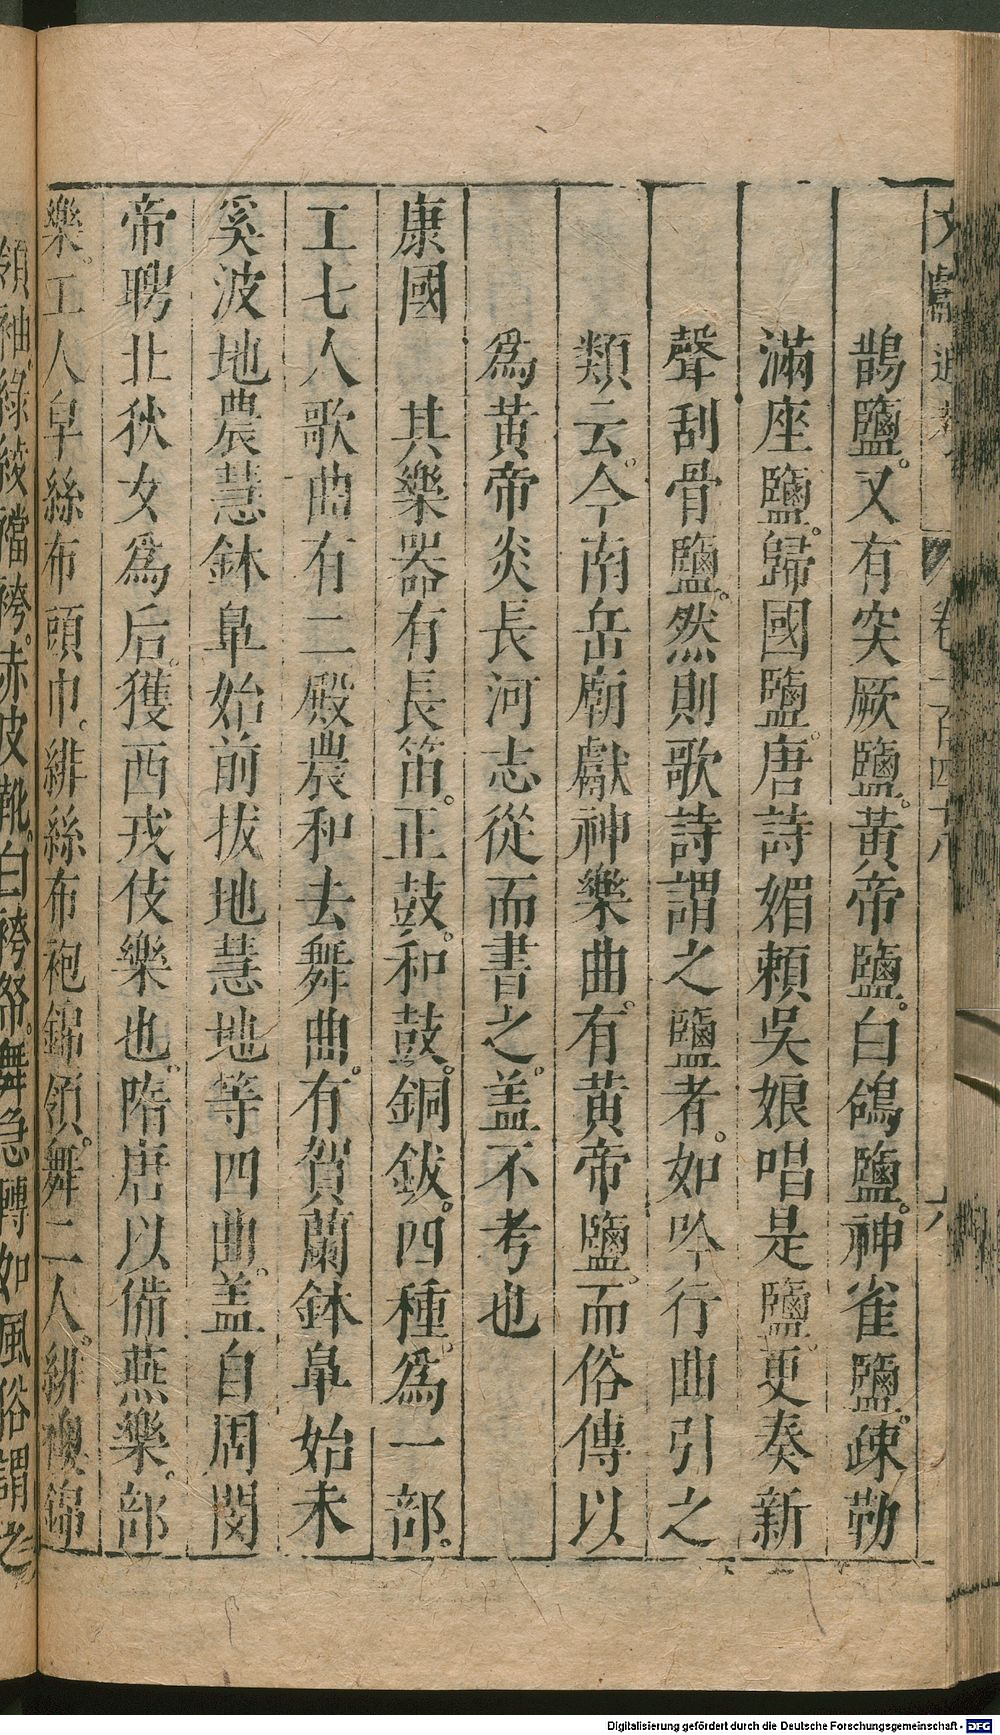 文獻通考 卷一百四十八 六
鵲鹽。又有突厥鹽。黃帝鹽。白鴿鹽。神雀鹽。疎勒
滿座鹽。歸國鹽。唐詩媚賴吳娘唱是鹽。更奏新
聲刮骨鹽。然則歌詩謂之鹽者。如吟行曲引之
類云。今南岳廟獻神樂曲。有黃帝鹽。而俗傳以
為黃帝炎長河志從而書之。盖不考也
康國　其樂器有長笛。正鼓。和鼓。銅鈸。四種。為一部。
工七人歌曲有二殿農和去舞曲。有賀蘭鉢鼻始未
奚波地農慧鉢鼻始前拔地慧地等四曲。盖自周閔
帝聘北狄女為后。獲西戎伎樂也。隋唐以備燕樂。部
樂。工人皁絲布頭巾。緋絲布袍錦領。舞二人。緋襖錦
領袖。綠綾襠袴。赤皮靴。白袴帑。舞急轉如風俗謂之
Digitalisierung gefördert durch die Deutsche Forschungsgemeinschaft - DFG